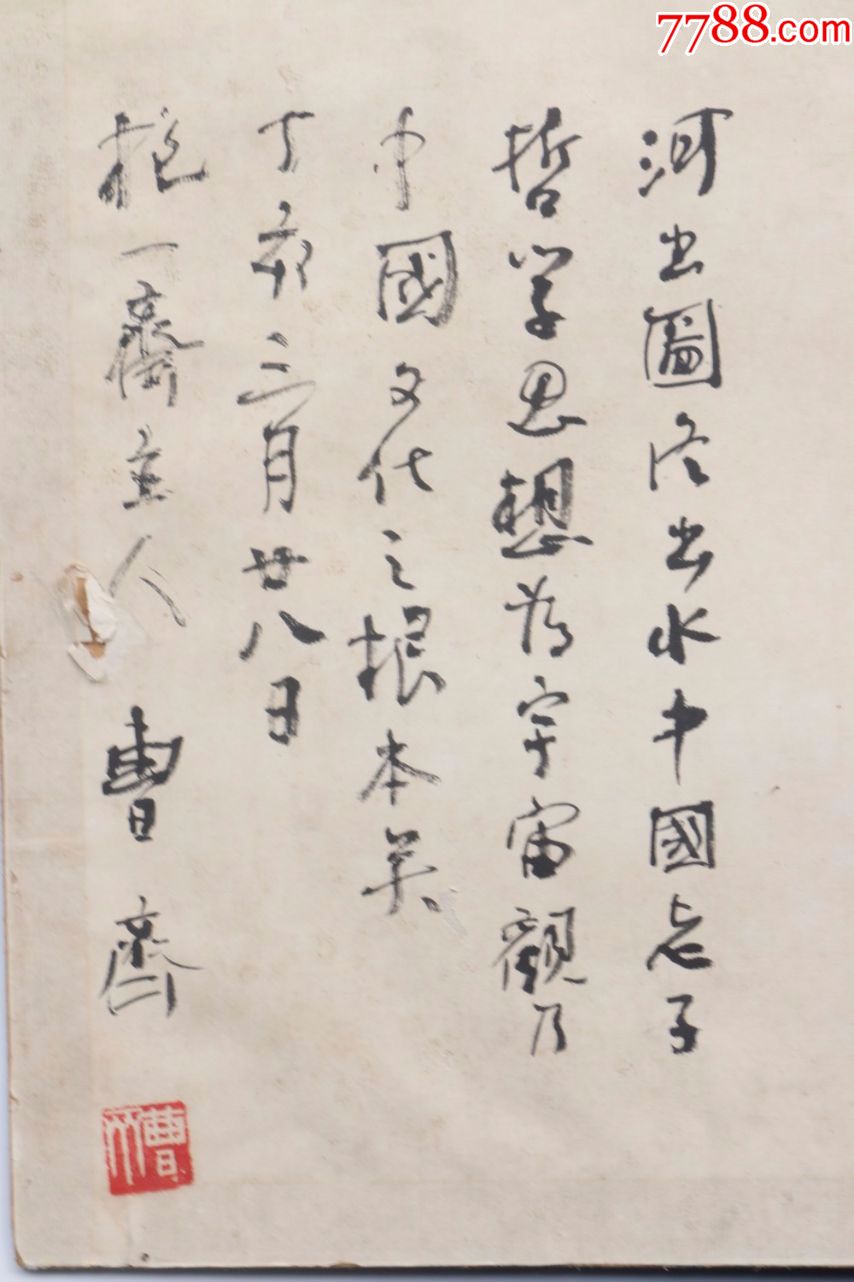 7788.com
河出圖洛出水中國老子
哲学思想为宇宙觀乃
中國文化之根本矣
丁亥三月廿八日
抱一齋主人 曹齊